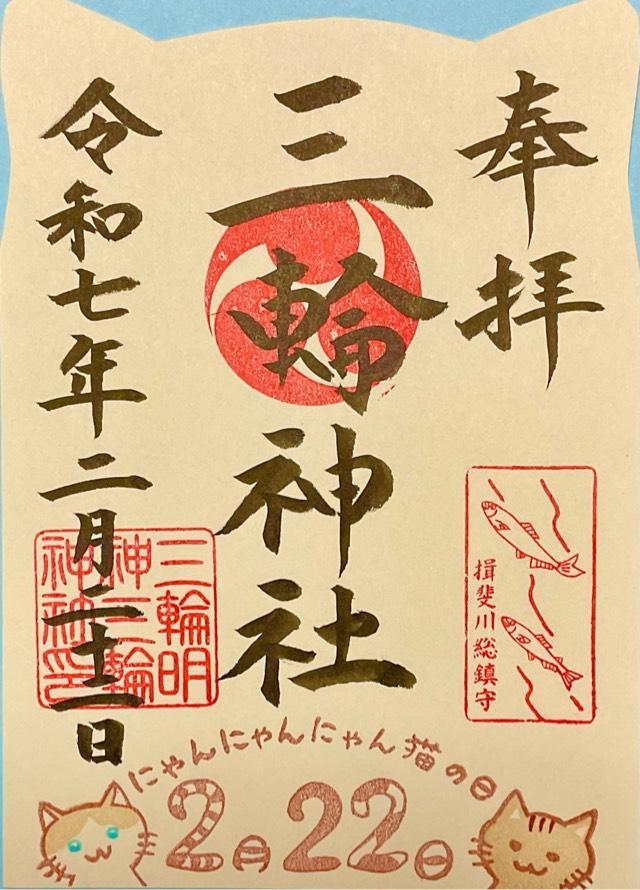 奉拝
三輪神社
令和七年二月二十二日
三輪明
神三輪
神社印
揖斐川総鎮守
にゃんにゃんにゃん猫の日
2月22日